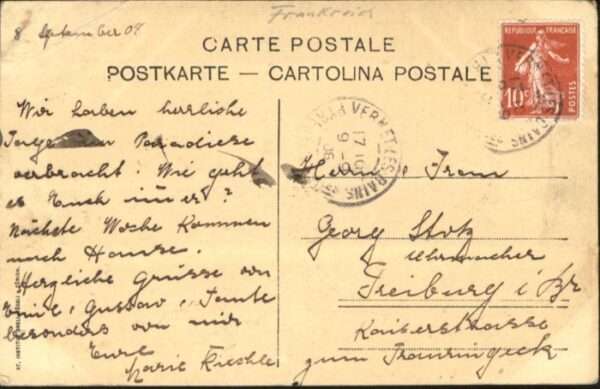 8 September 09
Frankreich
CARTE POSTALE
POSTKARTE — CARTOLINA POSTALE
REPUBLIQUE FRANÇAISE
10c
POSTES
VERNET LES BAINS
17 10
9 - 9
Wir haben herrliche
Tage im Paradiese
verbracht. Wie geht
es Euch immer?
Nächste Woche kommen
nach Hause.
Herzliche Grüsse von
Emil, Gustav, Tante
besonders von mir
Eure
Marie Kiechle
Herrn u. Frau
Georg Stotz
Uhrmacher
Freiburg i/Br
Kaiserstrasse
zum Trauringeck